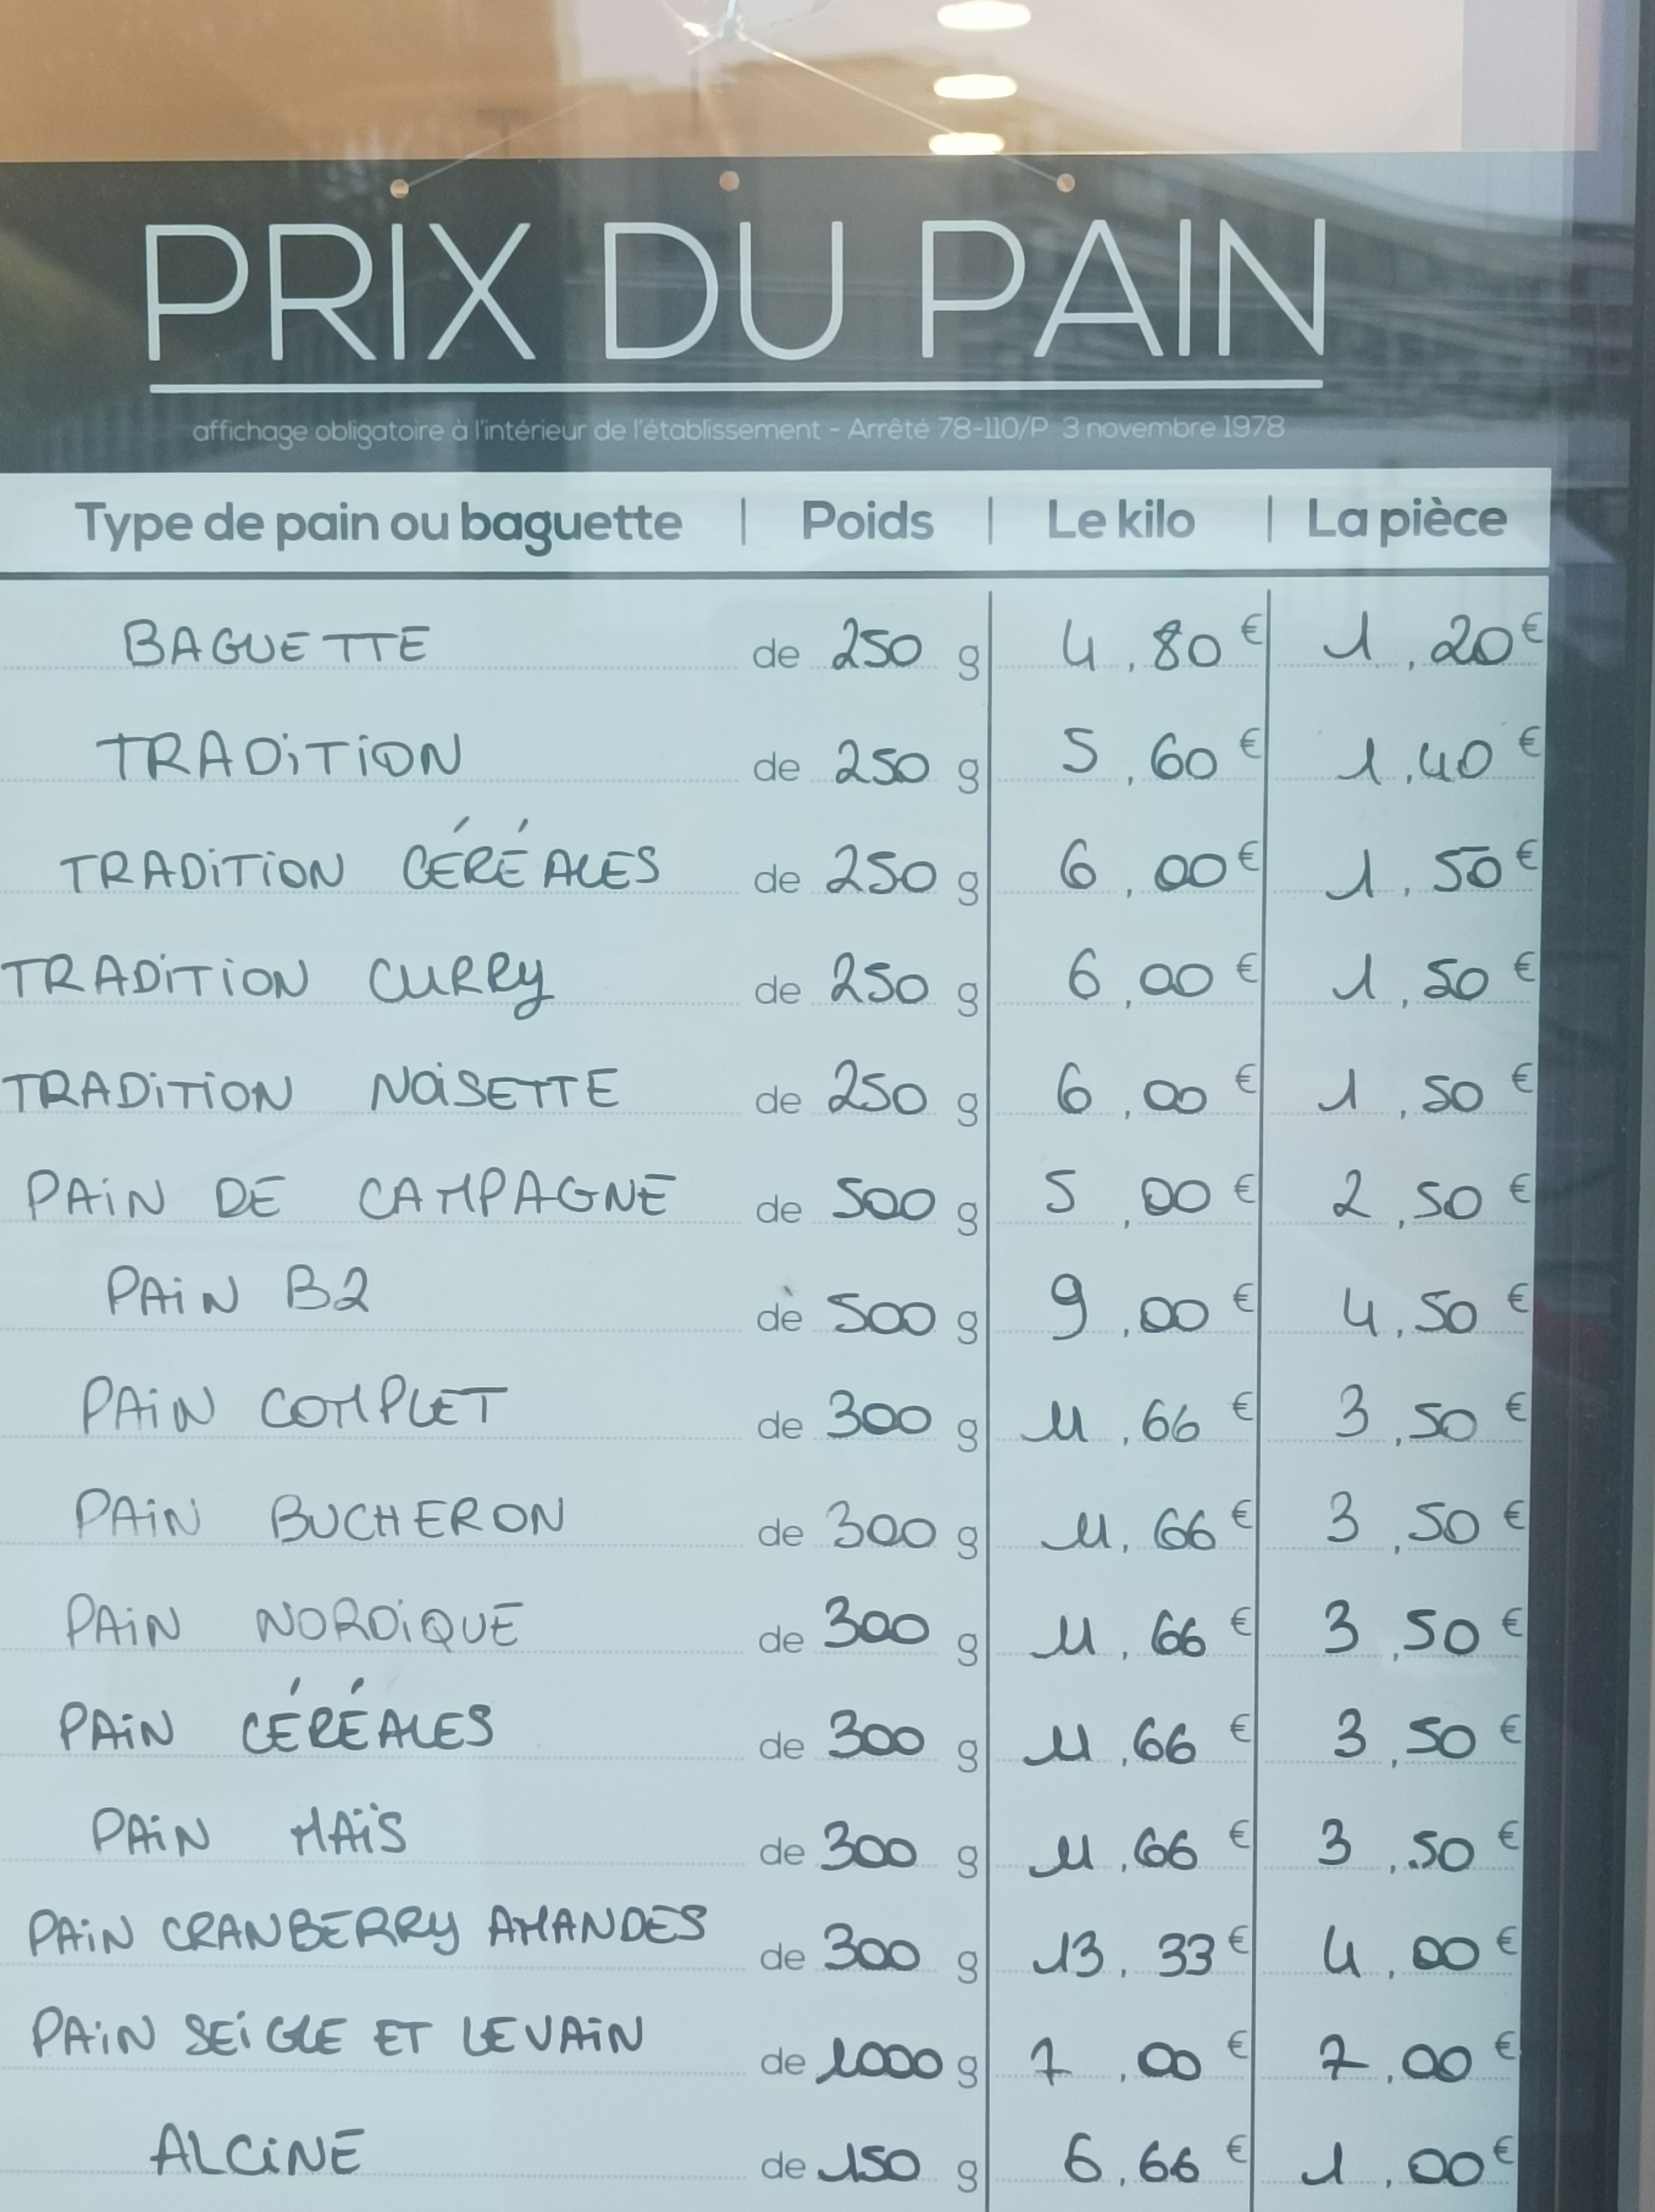 PRIX DU PAIN
affichage obligatoire à l'intérieur de l'établissement - Arrêté 78-110/P 3 novembre 1978
Type de pain ou baguette | Poids | Le kilo | La pièce
BAGUETTE de 250 g 4,80 € 1,20 €
TRADiTiON de 250 g 5,60 € 1,40 €
TRADiTiON CÉRÉALES de 250 g 6,00 € 1,50 €
TRADiTiON CURRY de 250 g 6,00 € 1,50 €
TRADiTiON NOiSETTE de 250 g 6,00 € 1,50 €
PAiN DE CAMPAGNE de 500 g 5,00 € 2,50 €
PAiN B2 de 500 g 9,00 € 4,50 €
PAiN COMPLET de 300 g 11,66 € 3,50 €
PAiN BUCHERON de 300 g 11,66 € 3,50 €
PAiN NORDiQUE de 300 g 11,66 € 3,50 €
PAiN CÉRÉALES de 300 g 11,66 € 3,50 €
PAiN MAÏS de 300 g 11,66 € 3,50 €
PAiN CRANBERRY AMANDES de 300 g 13,33 € 4,00 €
PAiN SEiGLE ET LEVAiN de 1000 g 7,00 € 7,00 €
ALCiNE de 150 g 6,66 € 1,00 €